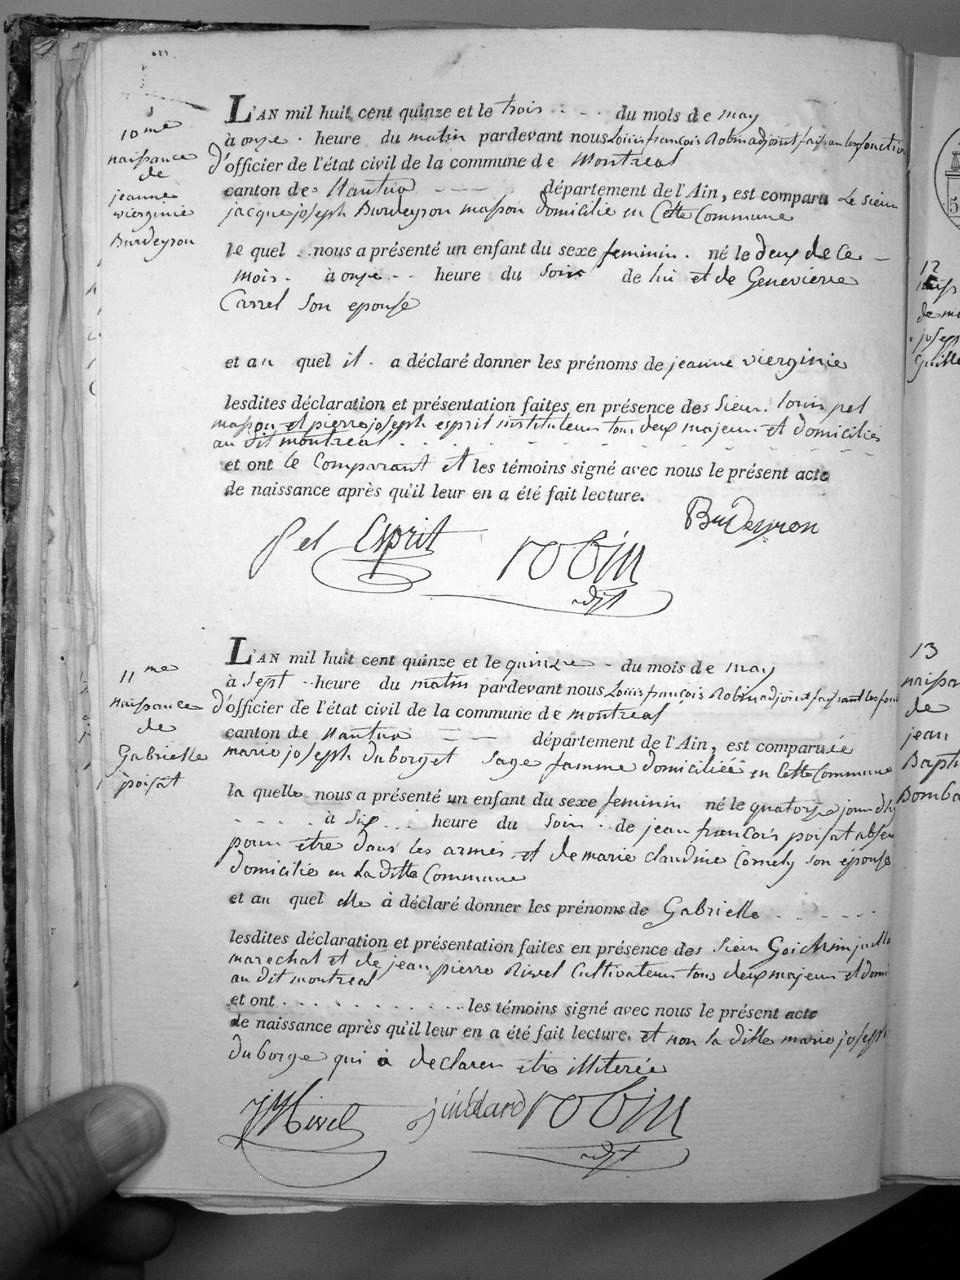 10me
naissance
de
jeanne
vierginie
Burdeyron
L'AN mil huit cent quinze et le trois du mois de may
à onze heure du matin pardevant nous Louis françois Robin adjoint faisant les fonction
d'officier de l'état civil de la commune de Montreal
canton de Nantua département de l'Ain, est comparu Le sieur
jacque joseph Burdeyron masson domicilié en Cette Commune
le quel nous a présenté un enfant du sexe feminin. né le deux de Ce
mois. à onze heure du soir de lui et de Genevierre
Carrel son epouse
et au quel il a déclaré donner les prénoms de jeanne vierginie
lesdites déclaration et présentation faites en présence des Sieur. louis pel
masson et pierre joseph esprit instituteur tous deux majeur et domicilié
au dit montreal
et ont le Comparant et les témoins signé avec nous le présent acte
de naissance après qu'il leur en a été fait lecture.
Burdeyron
Pel Esprit robin
adjt
11me
naissance
de
Gabrielle
poisat
L'AN mil huit cent quinze et le quinze du mois de may
à sept heure du matin pardevant nous Louis françois Robin adjoint faisant les fon
d'officier de l'état civil de la commune de montreal
canton de Nantua département de l'Ain, est comparuée
marie joseph duborget sage famme domiciliéé en Cette Commune
la quelle nous a présenté un enfant du sexe feminin né le quatorze jour du
à six heure du soir de jean francois poisat absen
pour etre dans les armés et de marie claudine Cornely son épouse
domicilié en La ditte Commune
et au quel elle à déclaré donner les prénoms de Gabrielle
lesdites déclaration et présentation faites en présence des Sieur
marechal et de jean pierre Rivel Cultivateur tous deux majeur et domi
au dit montreal
et ont les témoins signé avec nous le présent acte
de naissance après qu'il leur en a été fait lecture, et non la ditte marie joseph
duborge qui a declarer etre illiterée
JP Rivel juillard robin
adjt
12
naiss
de ma
joseph
Guille
13
naissan
de
jean
Bapti
Bomba
5